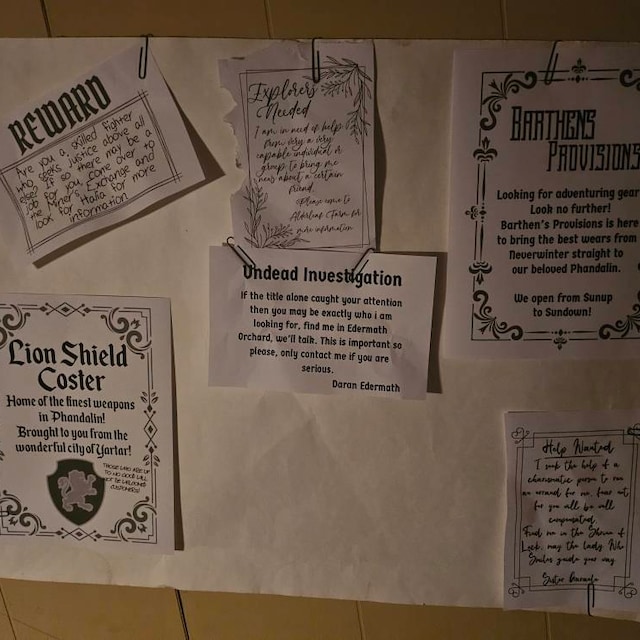 REWARD
Are you a skilled Fighter
who seeks justice above all
else? If so there may be a
job for you. Come over to
the Miner's Exchange and
look for Halia for more
information
Explorers
Needed
I am in need of help
from very a very
capable individual or
group to bring me
news about a certain
friend.
Please come to
Alderleaf Farm for
more information
Undead Investigation
If the title alone caught your attention
then you may be exactly who i am
looking for, find me in Edermath
Orchard, we'll talk. This is important so
please, only contact me if you are
serious.
Daran Edermath
BARTHENS
PROVISIONS
Looking for adventuring gear
Look no further!
Barthen's Provisions is here
to bring the best wears from
Neverwinter straight to
our beloved Phandalin.
We open from Sunup
to Sundown!
Lion Shield
Coster
Home of the finest weapons
in Phandalin!
Brought to you from the
wonderful city of Yartar!
THOSE WHO ARE UP
TO NO GOOD WILL
NOT BE WELCOMED
CUSTOMERS!
Help Wanted
I seek the help of a
charismatic person to run
an errand for me, fear not
for you will be well
compensated.
Find me in the Shrine of
Luck, may the lady Who
Smiles guide your way.
Sister Garaele